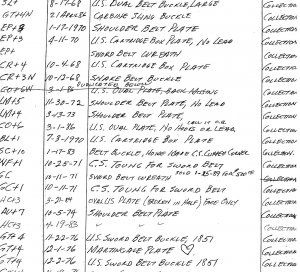 8-17-68 U.S. Oval Belt Buckle, Large Collection
GT14N 21 Aug 86 Carbine Sling Buckle Collection
1-17-1970 Shoulder Belt Plate Collection
EP+3 4-11-70 U.S. Cartridge Box Plate, No Lead Collection
EP+ Sword Belt Wreath Collection
CR+4 10-4-68 U.S. Cartridge Box Plate Collection
CR+3N 10-12-68 Snake Belt Buckle Collection
Duplicated Below
U.S. Oval Plate, Back Missing Collection
LM+5 11-30-72 Shoulder Plate, No Lead Collection
LM+4 3-13-73 Shoulder Belt Plate, Collection
CO+6 3-1-86 U.S. Oval Plate, No Hooks or Lead Collection
BL+1 7-8-1970 U.S. Cartridge Box Plate Collection
SC+10 1-1-83 Belt Buckle, Collection
WF+1 10-25-71 C.S. Toung for Sword Belt Collection
GC 10-11-71 Sword Belt Wreath Sold Collection
GC+1 10-11-71 C.S. Toung for Sword Belt Collection
HC13 3-21-84 Oval US Plate (Broken in Half) Fone Only Collection
AV+7 10-5-74 Shoulder Belt Plate Collection
HC13 4-19-83 " " " Collection
GT+4 11-22-76 U.S. Sword Belt Buckle, 1851 Collection
GT+4 12-1-76 Martingale Plate Collection
GT+4 12-2-76 U.S. Sword Belt Buckle 1851 Collection